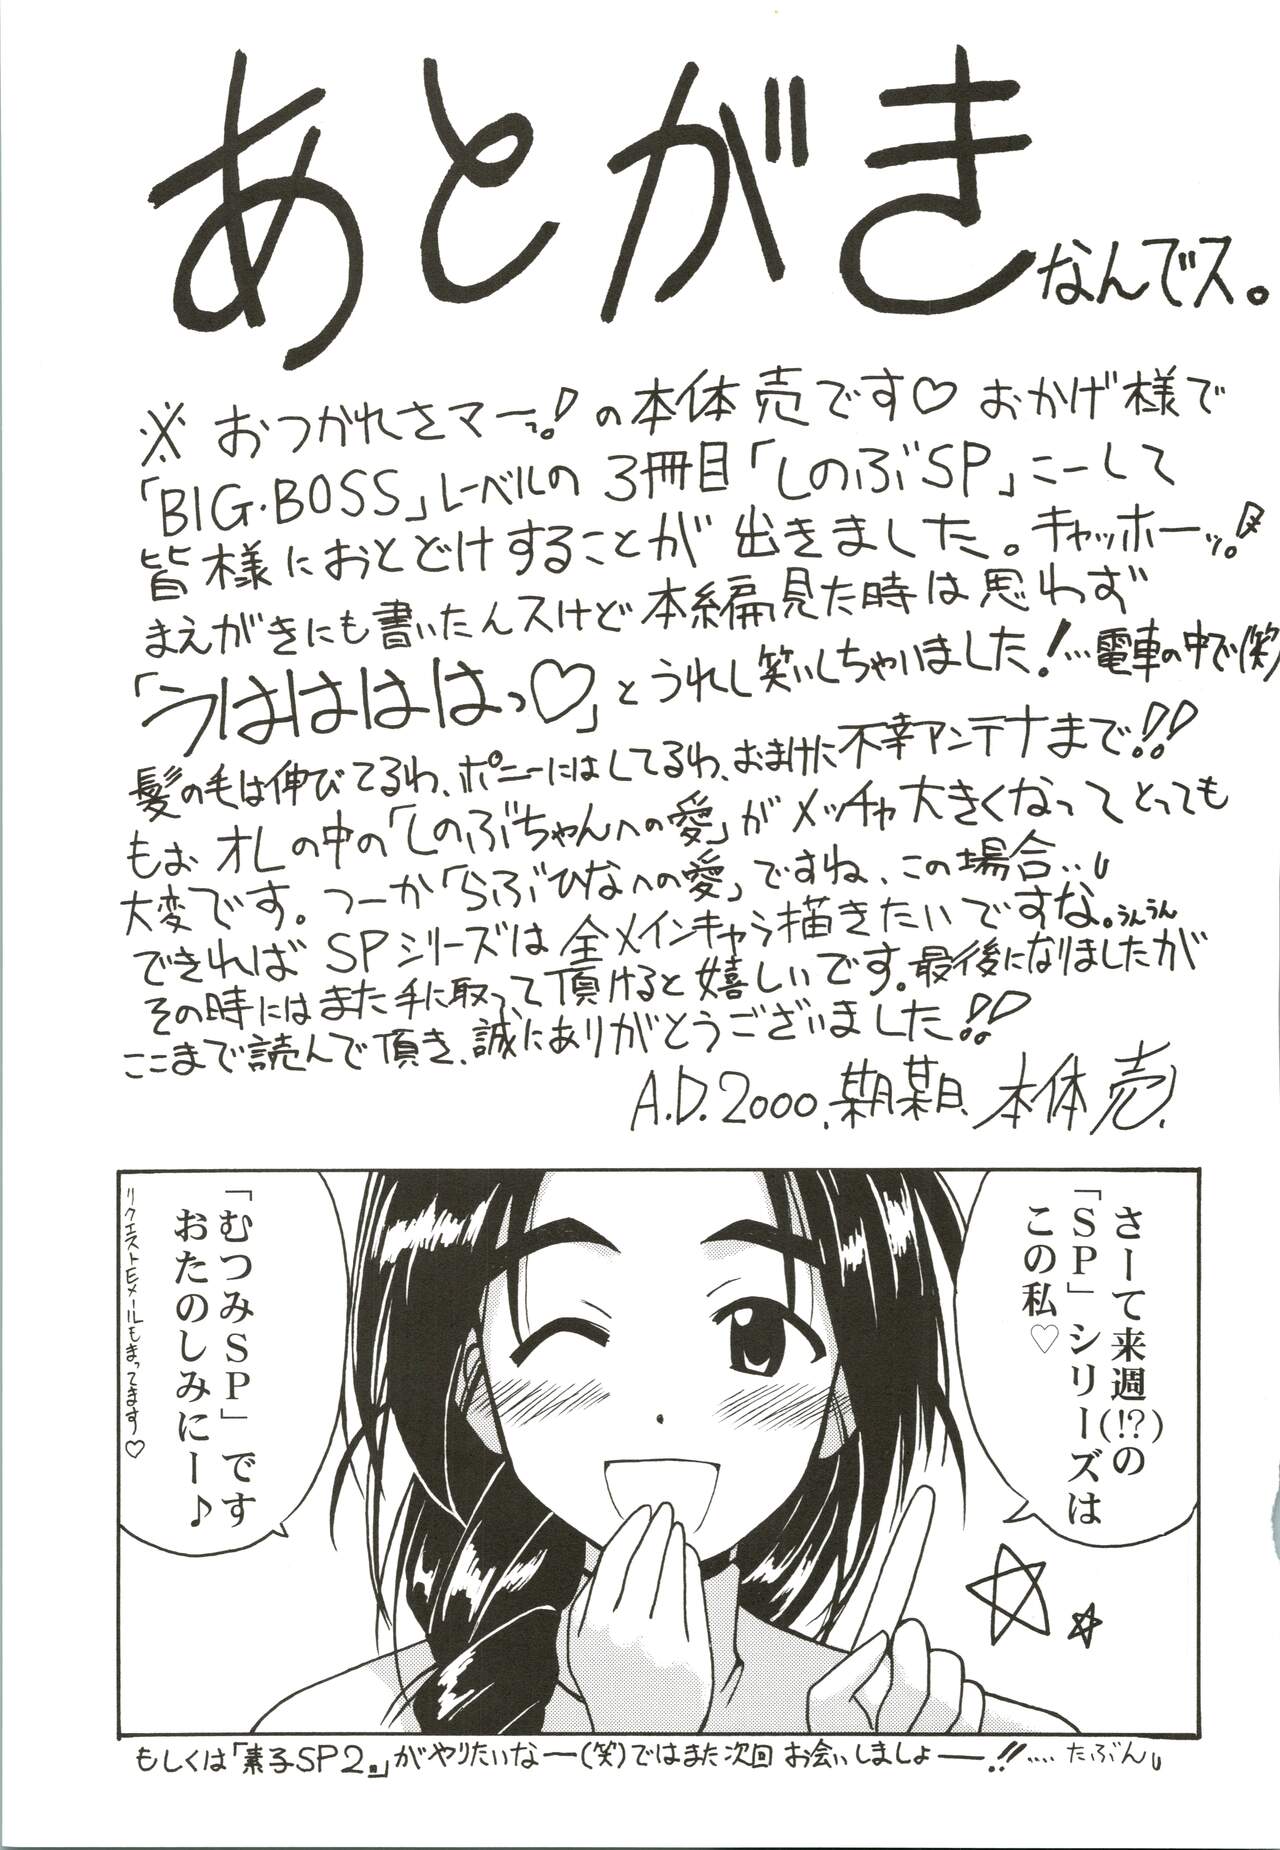 あとがきなんでス。
※おつかれさマーっ!の本体売です♡ おかげ様で
「BIG・BOSS」レーベルの3冊目「しのぶSP」こーして
皆様におとどけすることが出きました。キャッホーッ!
まえがきにも書いたんスけど本編見た時は思わず
「うはははっ♡」とうれし笑いしちゃいました!…電車の中で(笑)
髪の毛は伸びてるわ、ポニーにはしてるわ、おまけに不幸アンテナまで!!
もぉオレの中の「しのぶちゃんへの愛」がメッチャ大きくなってとっても
大変です。つーか「らぶひなへの愛」ですね、この場合…
できればSPシリーズは全メインキャラ描きたいですな。うんうん
その時にはまた手に取って頂けると嬉しいです。最後になりましたが
ここまで読んで頂き、誠にありがとうございました!!
A.D.2000.某月某日 本体売.
さーて来週(!?)の
「SP」シリーズは
この私♡
「むつみSP」です
おたのしみにー♪
リクエストEメールもまってます♡
もしくは「素子SP2。」がやりたいなー(笑)ではまた次回お会いしましょー!!……たぶん